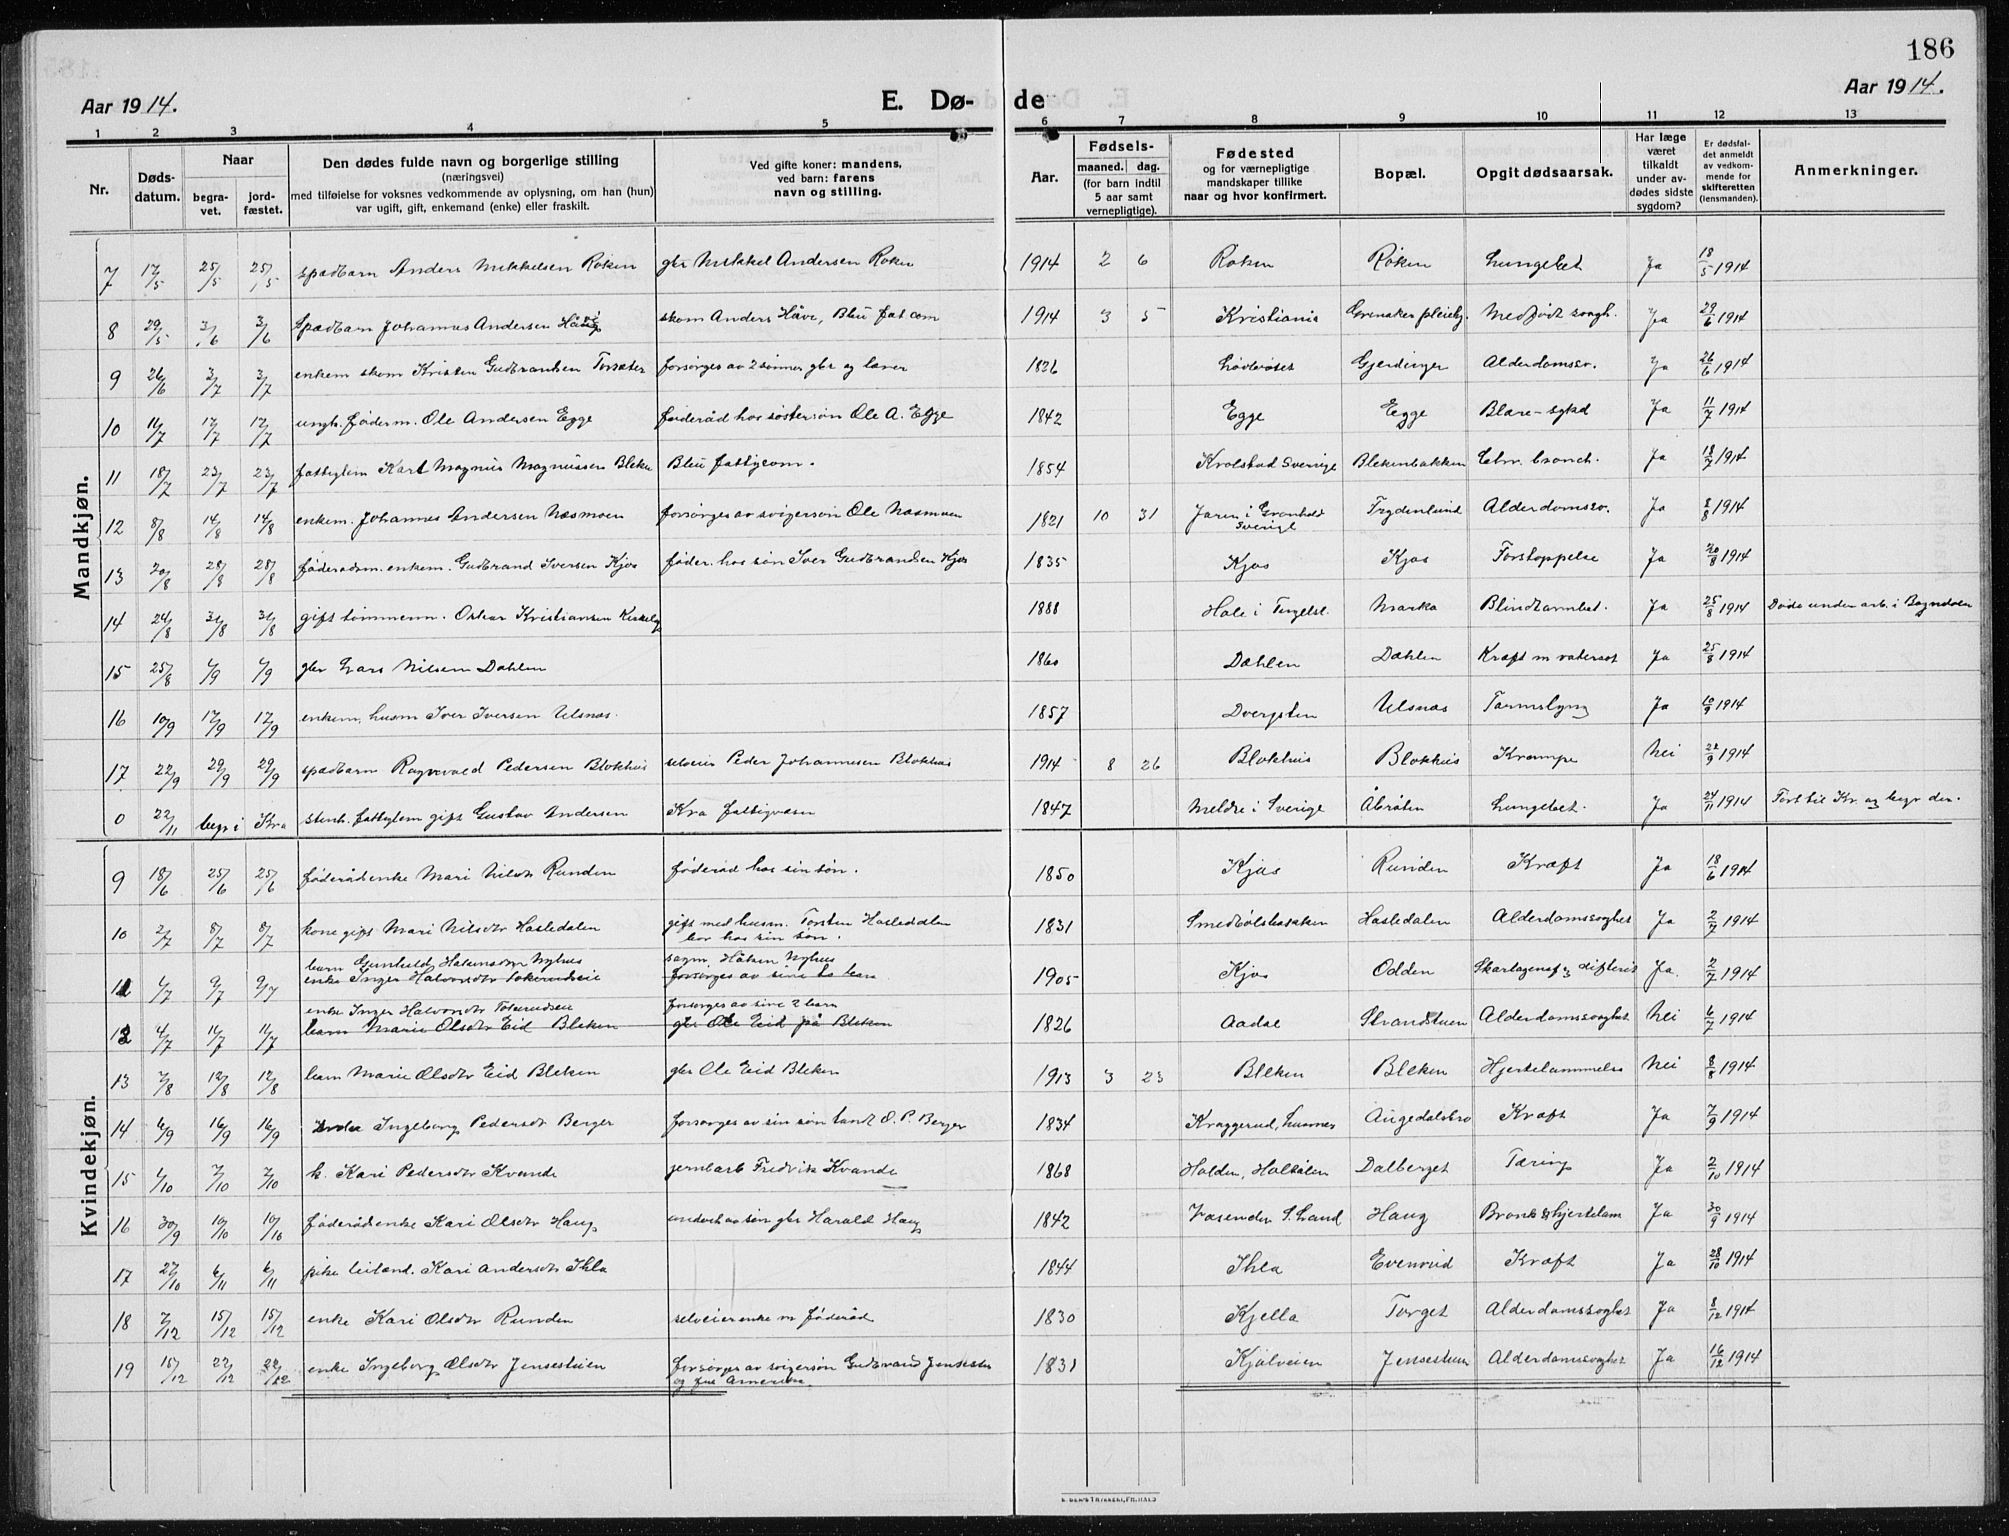 186
Aar 1914. E. Dø- de Aar 1914.
1 2 3 4 5 6 7 8 9 10 11 12 13
Nr. Døds-datum. Naar begra-vet. jord-fæstet. Den dødes fulde navn og borgerlige stilling (næringsvei) med tilføielse for voksnes vedkommende av oplysning, om han (hun) var ugift, gift, enkemand (enke) eller fraskilt. Ved gifte koner: mandens, ved barn: farens navn og stilling. Aar. Fødsels- maaned. dag. (for barn indtil 5 aar samt vernepligtige). Fødested og for værnepligtige mandskaper tillike naar og hvor konfirmert. Bopæl. Opgit dødsaarsak. Har læge været tilkaldt under av-dødes sidste sygdom? Er dødsfal-det anmeldt av vedkom-mende for skifteretten (lensmanden). Anmerkninger.
Mandkjøn.
7 17/5 25/5 25/5 spædbarn Anders Mikkelsen Røken gbr Mikkel Andersen Røken 1914 2 6 Røken Røken Lungebet Ja 18/5 1914
8 29/5 3/6 3/6 Spædbarn Johannes Andersen skom Anders Håve, 1914 3 5 Kristiania Ja 29/6 1914
9 26/6 3/7 3/7 enkem skom Kristen Gudbrandsen Torsæter forsørges av 2 sønner gbr og lærer 1826 Gjerdinger Alderdomssv. Ja 26/6 1914
10 11/7 17/7 17/7 ungk. føderm. Ole Andersen Egge føderåd hos søstersøn Ole A. Egge 1842 Egge Egge Blære-sykd Ja 11/7 1914
11 18/7 23/7 23/7 fattiglem Karl Magnus Magnussen Bleken Bleu fattigcom. 1854 Krolstad Sverige Blekenbakken Chr. bronch. Ja 18/7 1914
12 8/8 14/8 14/8 enkem. Johannes Andersen Næsmoen forsørges av svigersøn Ole Næsmoen 1821 10 31 Sverige Frydenlund Alderdomssv. Ja 8/8 1914
13 20/8 28/8 28/8 føderadsm. enkem. Gudbrand Iversen Kjos føder. hos søn Iver Gudbrandsen Kjos 1835 Kjos Kjos Forstoppelse Ja 20/8 1914
14 24/8 31/8 31/8 gift tømmerm. Oskar Kristiansen 1888 Hole i Marka Blindtarmbet. Ja 25/8 1914 Døde under arb. i Bagndalen
15 25/8 1/9 1/9 gbr Lars Nilsen Dæhlen 1860 Dæhlen Dæhlen Kræft m vatersot Ja 25/8 1914
16 10/9 17/9 17/9 enkem, husm Iver Iversen Ulsnæs. 1857 Dvergsten Ulsnæs Tarmslyng Ja 10/9 1914
17 22/9 29/9 29/9 spædbarn Ragnvald Pedersen Blokhus selveier Peder Johannesen Blokhus 1914 8 26 Blokhus Blokhus Krampe Nei 22/9 1914
0 22/11 begr i Kra stenh. fattiglem gift Gustav Andersen Kra fattigvæsen 1847 Meldre i Sverige Åbråten Lungebet. Ja 24/11 1914 Ført til Kr. og begr der.
Kvindekjøn.
9 18/6 25/6 25/6 føderådenke Mari Nilsdtr Runden føderåd hos sin søn. 1850 Kjos Runden Kræft Ja 18/6 1914
10 2/7 8/7 8/7 kone gift Mari Nilsdtr Hasledalen gift med husm. Torsten Hasledalen 1831 Smedbølsbakken Hasledalen Alderdomssvaghet Ja 2/7 1914
bor hos sin søn.
barn Gunhild Hakensdtr Nyhus sagm. Håken Nyhus
11 1/7 9/7 9/7 enke Inger Halvorsdtr Tokerudseie forsørges av sine to barn 1905 Kjos Odden Skarlagensf og difterit Ja. 2/7 1914
enke Inger Halvorsdtr Tokerudseie forsørges av sine 2 barn
12 4/7 11/7 11/7 barn Marie Olsdtr Eid Bleken gbr Ole Eid på Bleken 1826 Aadal Strandstuen Alderdomssvaghet Nei 6/7 1914
13 7/8 12/8 12/8 barn Marie Olsdtr Eid Bleken gbr Ole Eid Bleken 1913 3 23 Bleken Bleken Hjertelammelse Nei 8/8 1914
14 6/9 16/9 16/9 Ingeborg Pedersdtr Berger forsørges av sin søn landh O. P. Berger 1834 Kraggerud, Augedalsbro Kræft Ja 7/9 1914
15 1/10 7/10 7/10 k. Kari Pedersdtr Kvande jernbarb Fredrik Kvande 1868 Holden, Holtålen Dalberget Tæring Ja 2/10 1914
16 30/9 10/10 10/10 føderådenke Kari Olsdtr Haug underh av søn gbr Harald Haug 1842 Vasenden S. Land Haug Bronk & hjertelam Ja 30/9 1914
17 27/10 6/11 6/11 pike leiland. Kari Andersdtr Ihla 1844 Ihla Evenrud Kræft Ja 28/10 1914
18 7/12 15/12 15/12 enke Kari Olsdtr Runden selveierenke m føderåd 1830 Kjella Torget Alderdomssvaghet Ja 8/12 1914
19 15/12 22/12 22/12 enke Ingeborg Olsdtr Jensestuen forsørges av svigersøn Gudbrand Jensestuen 1831 Kjølveien Jensestuen Alderdomssvaghet Ja 16/12 1914
og fra Amerika.